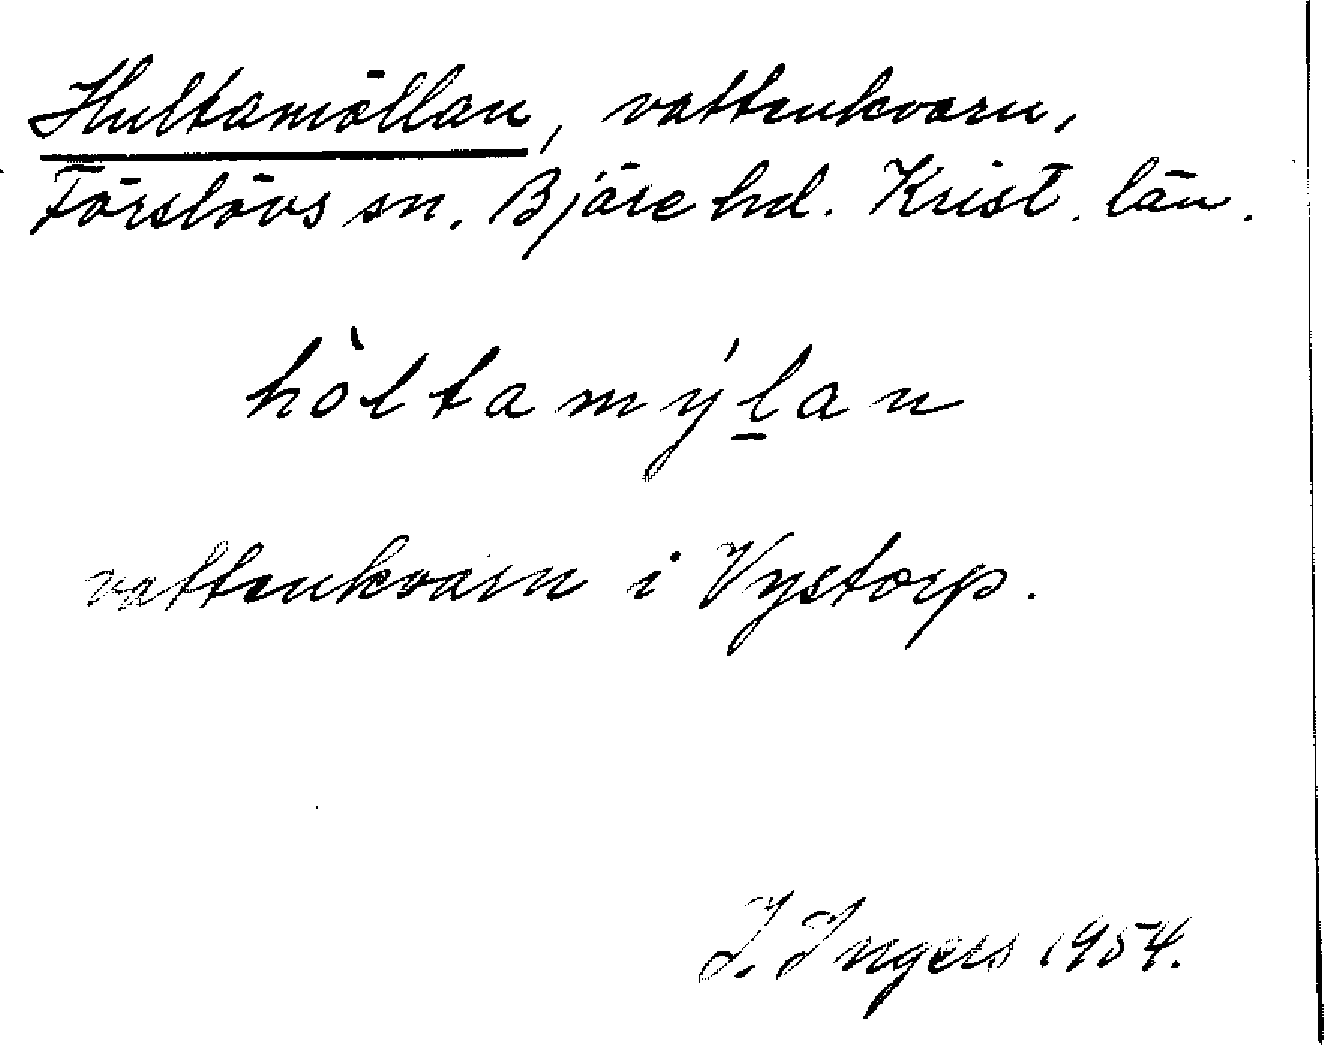 Hultamöllan, vattenkvarn,
Förslövs sn. Bjäre hd. Krist. län.
hòltamýl̲an
vattenkvarn i Vystorp.
I. Ingers 1954.